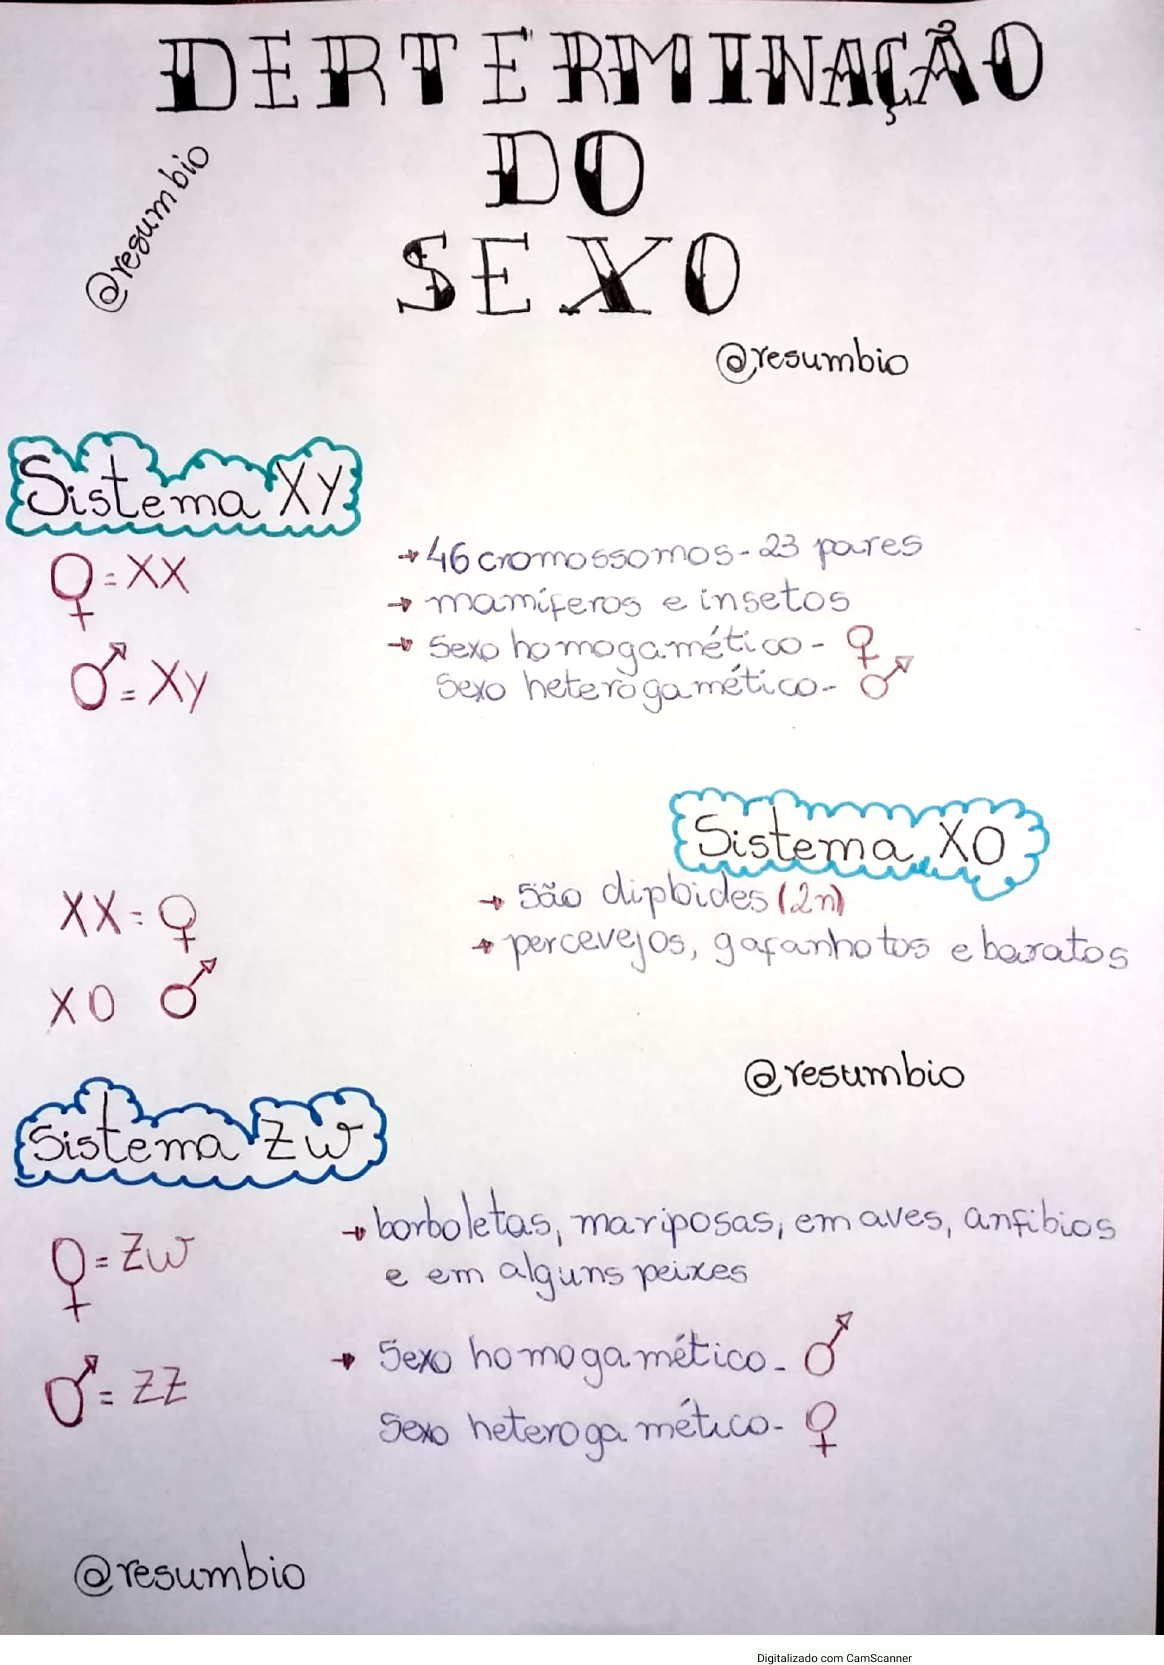 DERTERMINAÇÃO
DO
SEXO
@resumbio
@resumbio
Sistema XY
♀ = XX
♂ = Xy
→ 46 cromossomos - 23 pares
→ mamíferos e insetos
→ Sexo homogamético - ♀
Sexo heterogamético - ♂
Sistema XO
XX = ♀
XO ♂
→ São diploides (2n)
→ percevejos, gafanhotos e baratos
@resumbio
Sistema ZW
♀ = ZW
♂ = ZZ
→ borboletas, mariposas, em aves, anfibios
e em alguns peixes
→ Sexo homogamético - ♂
Sexo heterogamético - ♀
@resumbio
Digitalizado com CamScanner